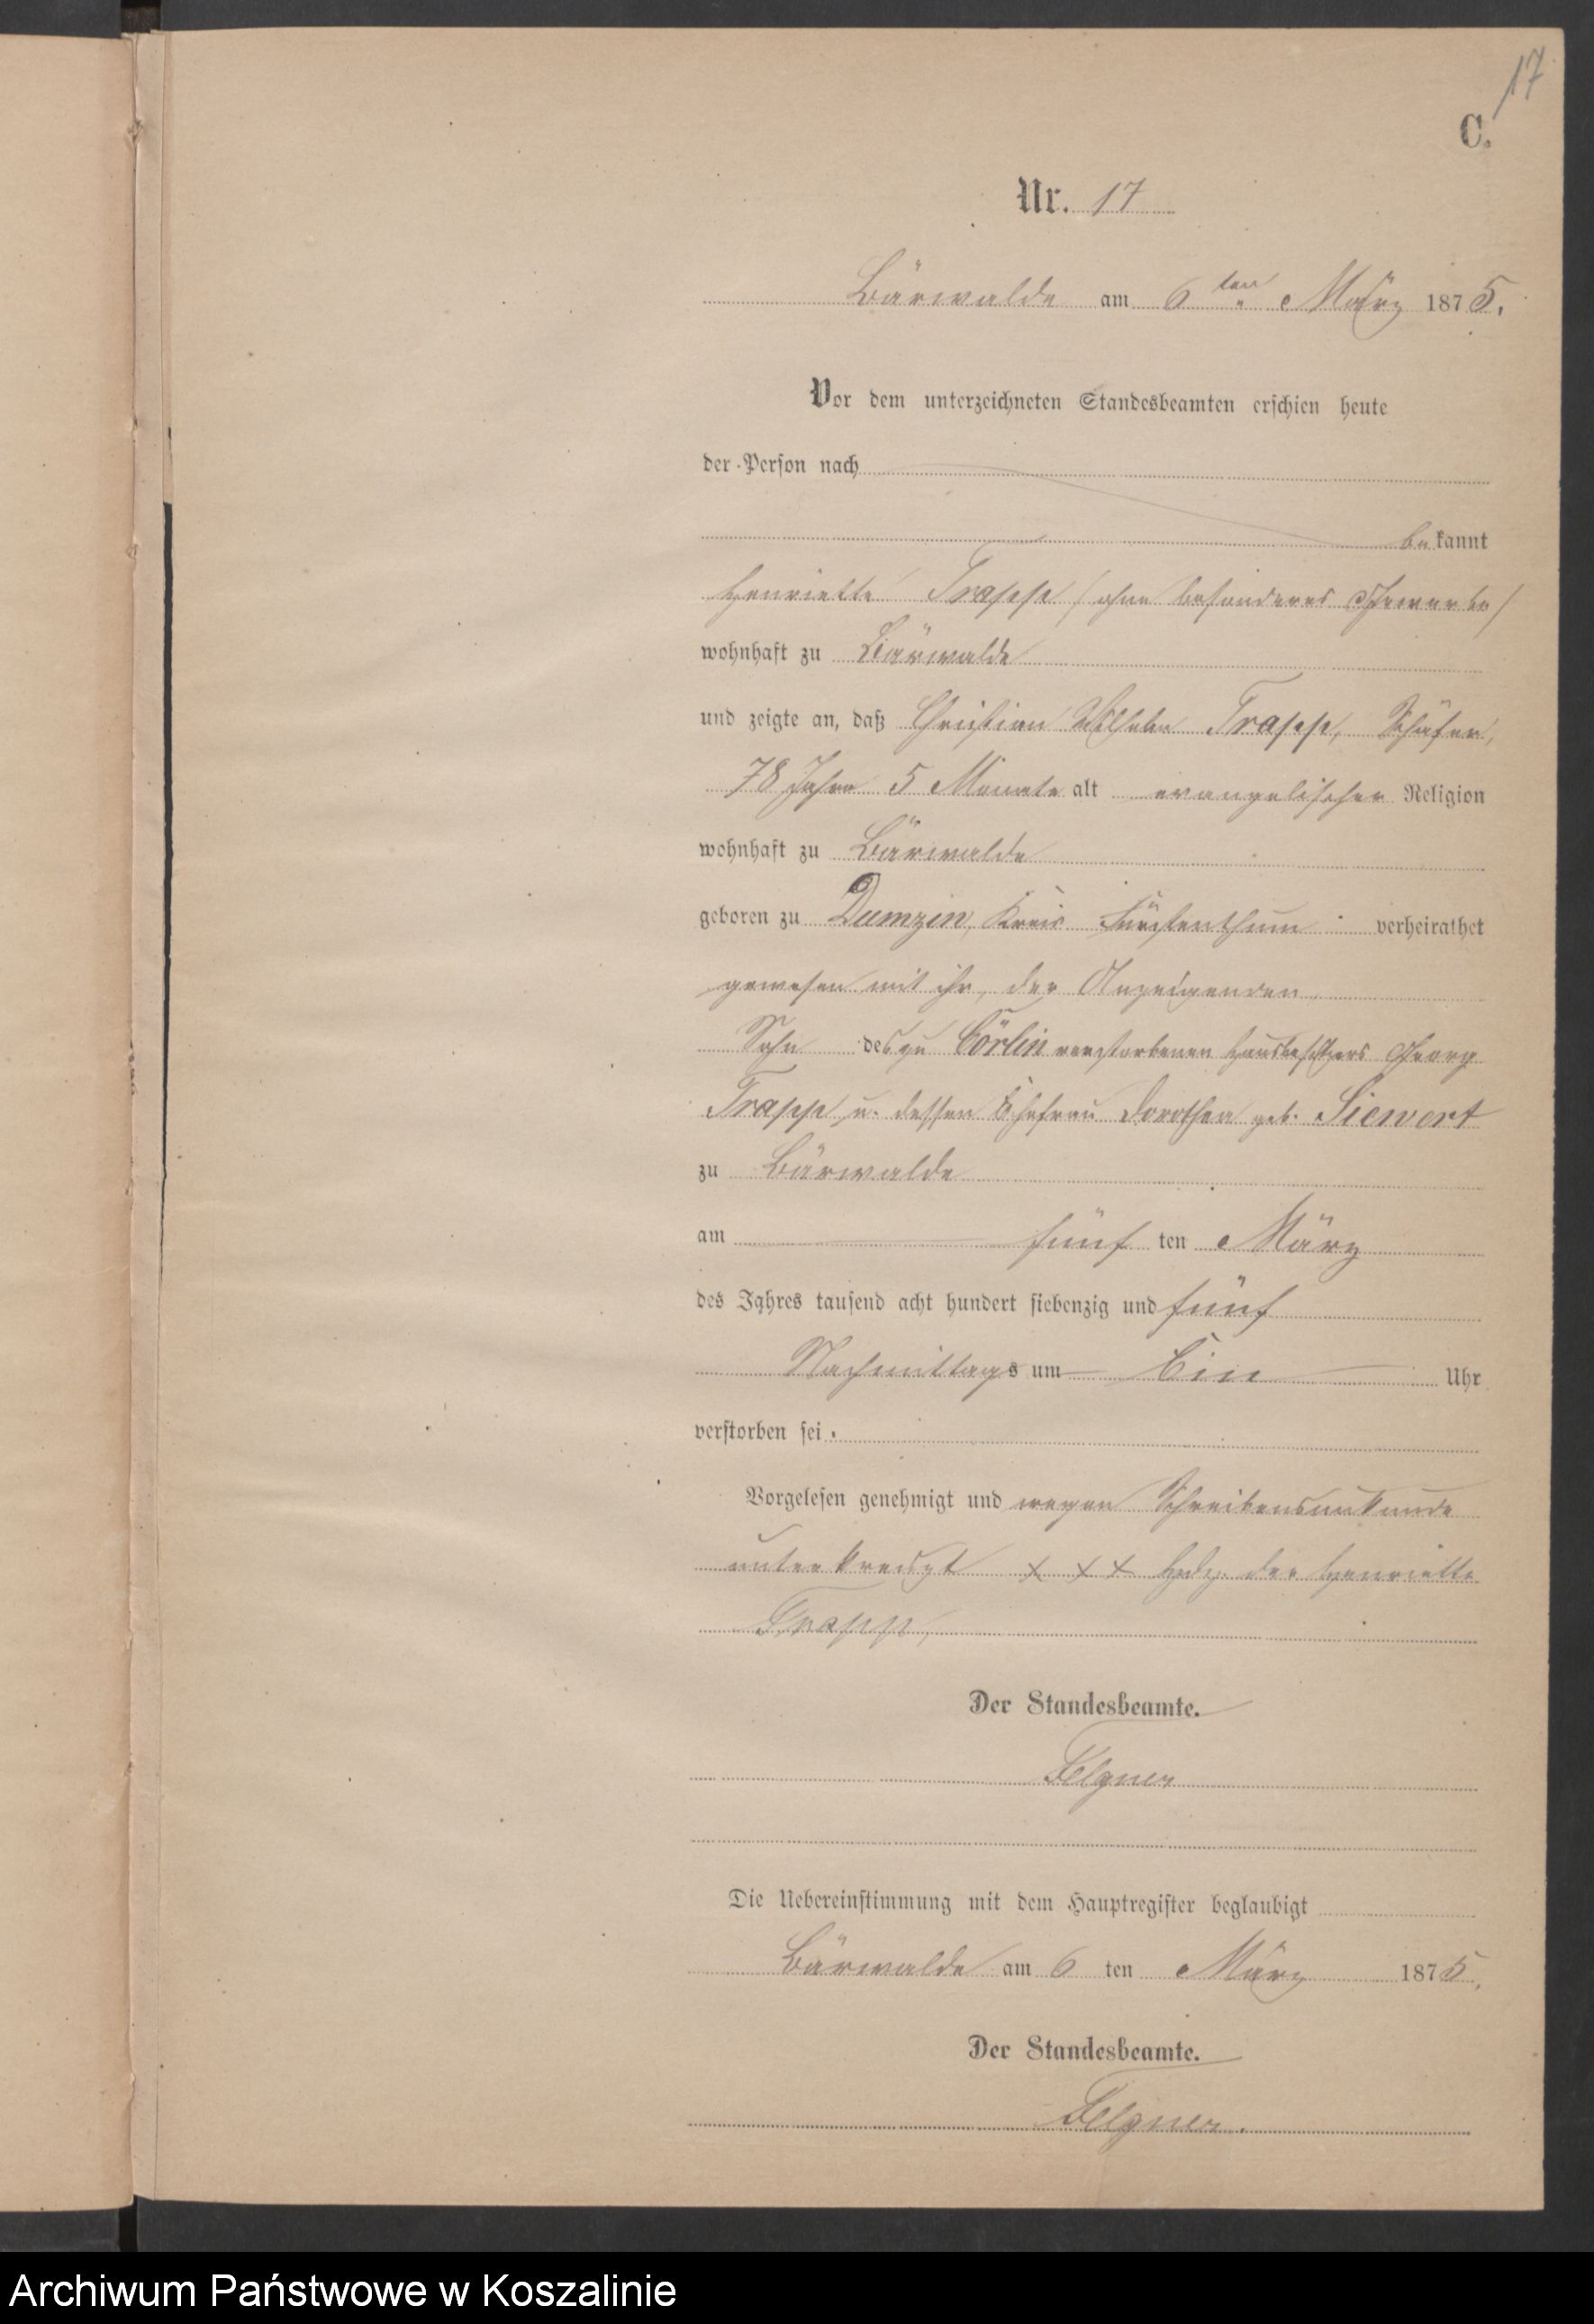 17
C.
Nr. 17
Bärwalde am 6ten März 1875.
Vor dem unterzeichneten Standesbeamten erschien heute
der Person nach
bekannt
Henriette Trapp / ohne besonderes Gewerbe /
wohnhaft zu Bärwalde
und zeigte an, daß Christian Wilhelm Trapp, Schäfer,
78 Jahre 5 Monate alt evangelischer Religion
wohnhaft zu Bärwalde
geboren zu Dumzin, Kreis Fürstenthum verheirathet
gewesen mit ihr, der Anzeigenden
Sohn des zu Cörlin verstorbenen Hausbesitzers Georg
Trapp u. dessen Ehefrau Dorothea geb. Siewert
zu Bärwalde
am fünf ten März
des Jahres tausend acht hundert siebenzig und fünf
Nachmittags um Ein Uhr
verstorben sei.
Vorgelesen genehmigt und wegen Schreibensunkunde
unterkreuzt + + + Hdz. der Henriette
Trapp,
Der Standesbeamte.
Felgner
Die Uebereinstimmung mit dem Hauptregister beglaubigt
Bärwalde am 6 ten März 1875.
Der Standesbeamte.
Felgner.
Archiwum Państwowe w Koszalinie